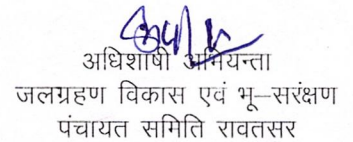 अधिशाषी अभियन्ता
जलग्रहण विकास एवं भू–सरंक्षण
पंचायत समिति रावतसर